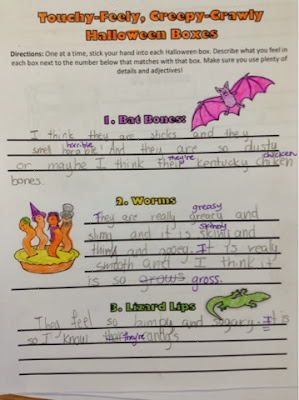 Touchy-Feely, Creepy-Crawly
Halloween Boxes
Directions: One at a time, stick your hand into each Halloween box. Describe what you feel in
each box next to the number below that matches with that box. Make sure you use plenty of
details and adjectives!
1. Bat Bones:
I think they are sticks and they
horrible
smell And they are so dusty
they're chicken
or maybe I think their kentucky chicken
bones.
2. Worms
greasy
They are really greacy and
skinny
slimy and it is and
and ooey. It is really
smooth and I think it
is so grows gross.
3. Lizard Lips
They feel so bumpy and sugary. It is
so I know they're